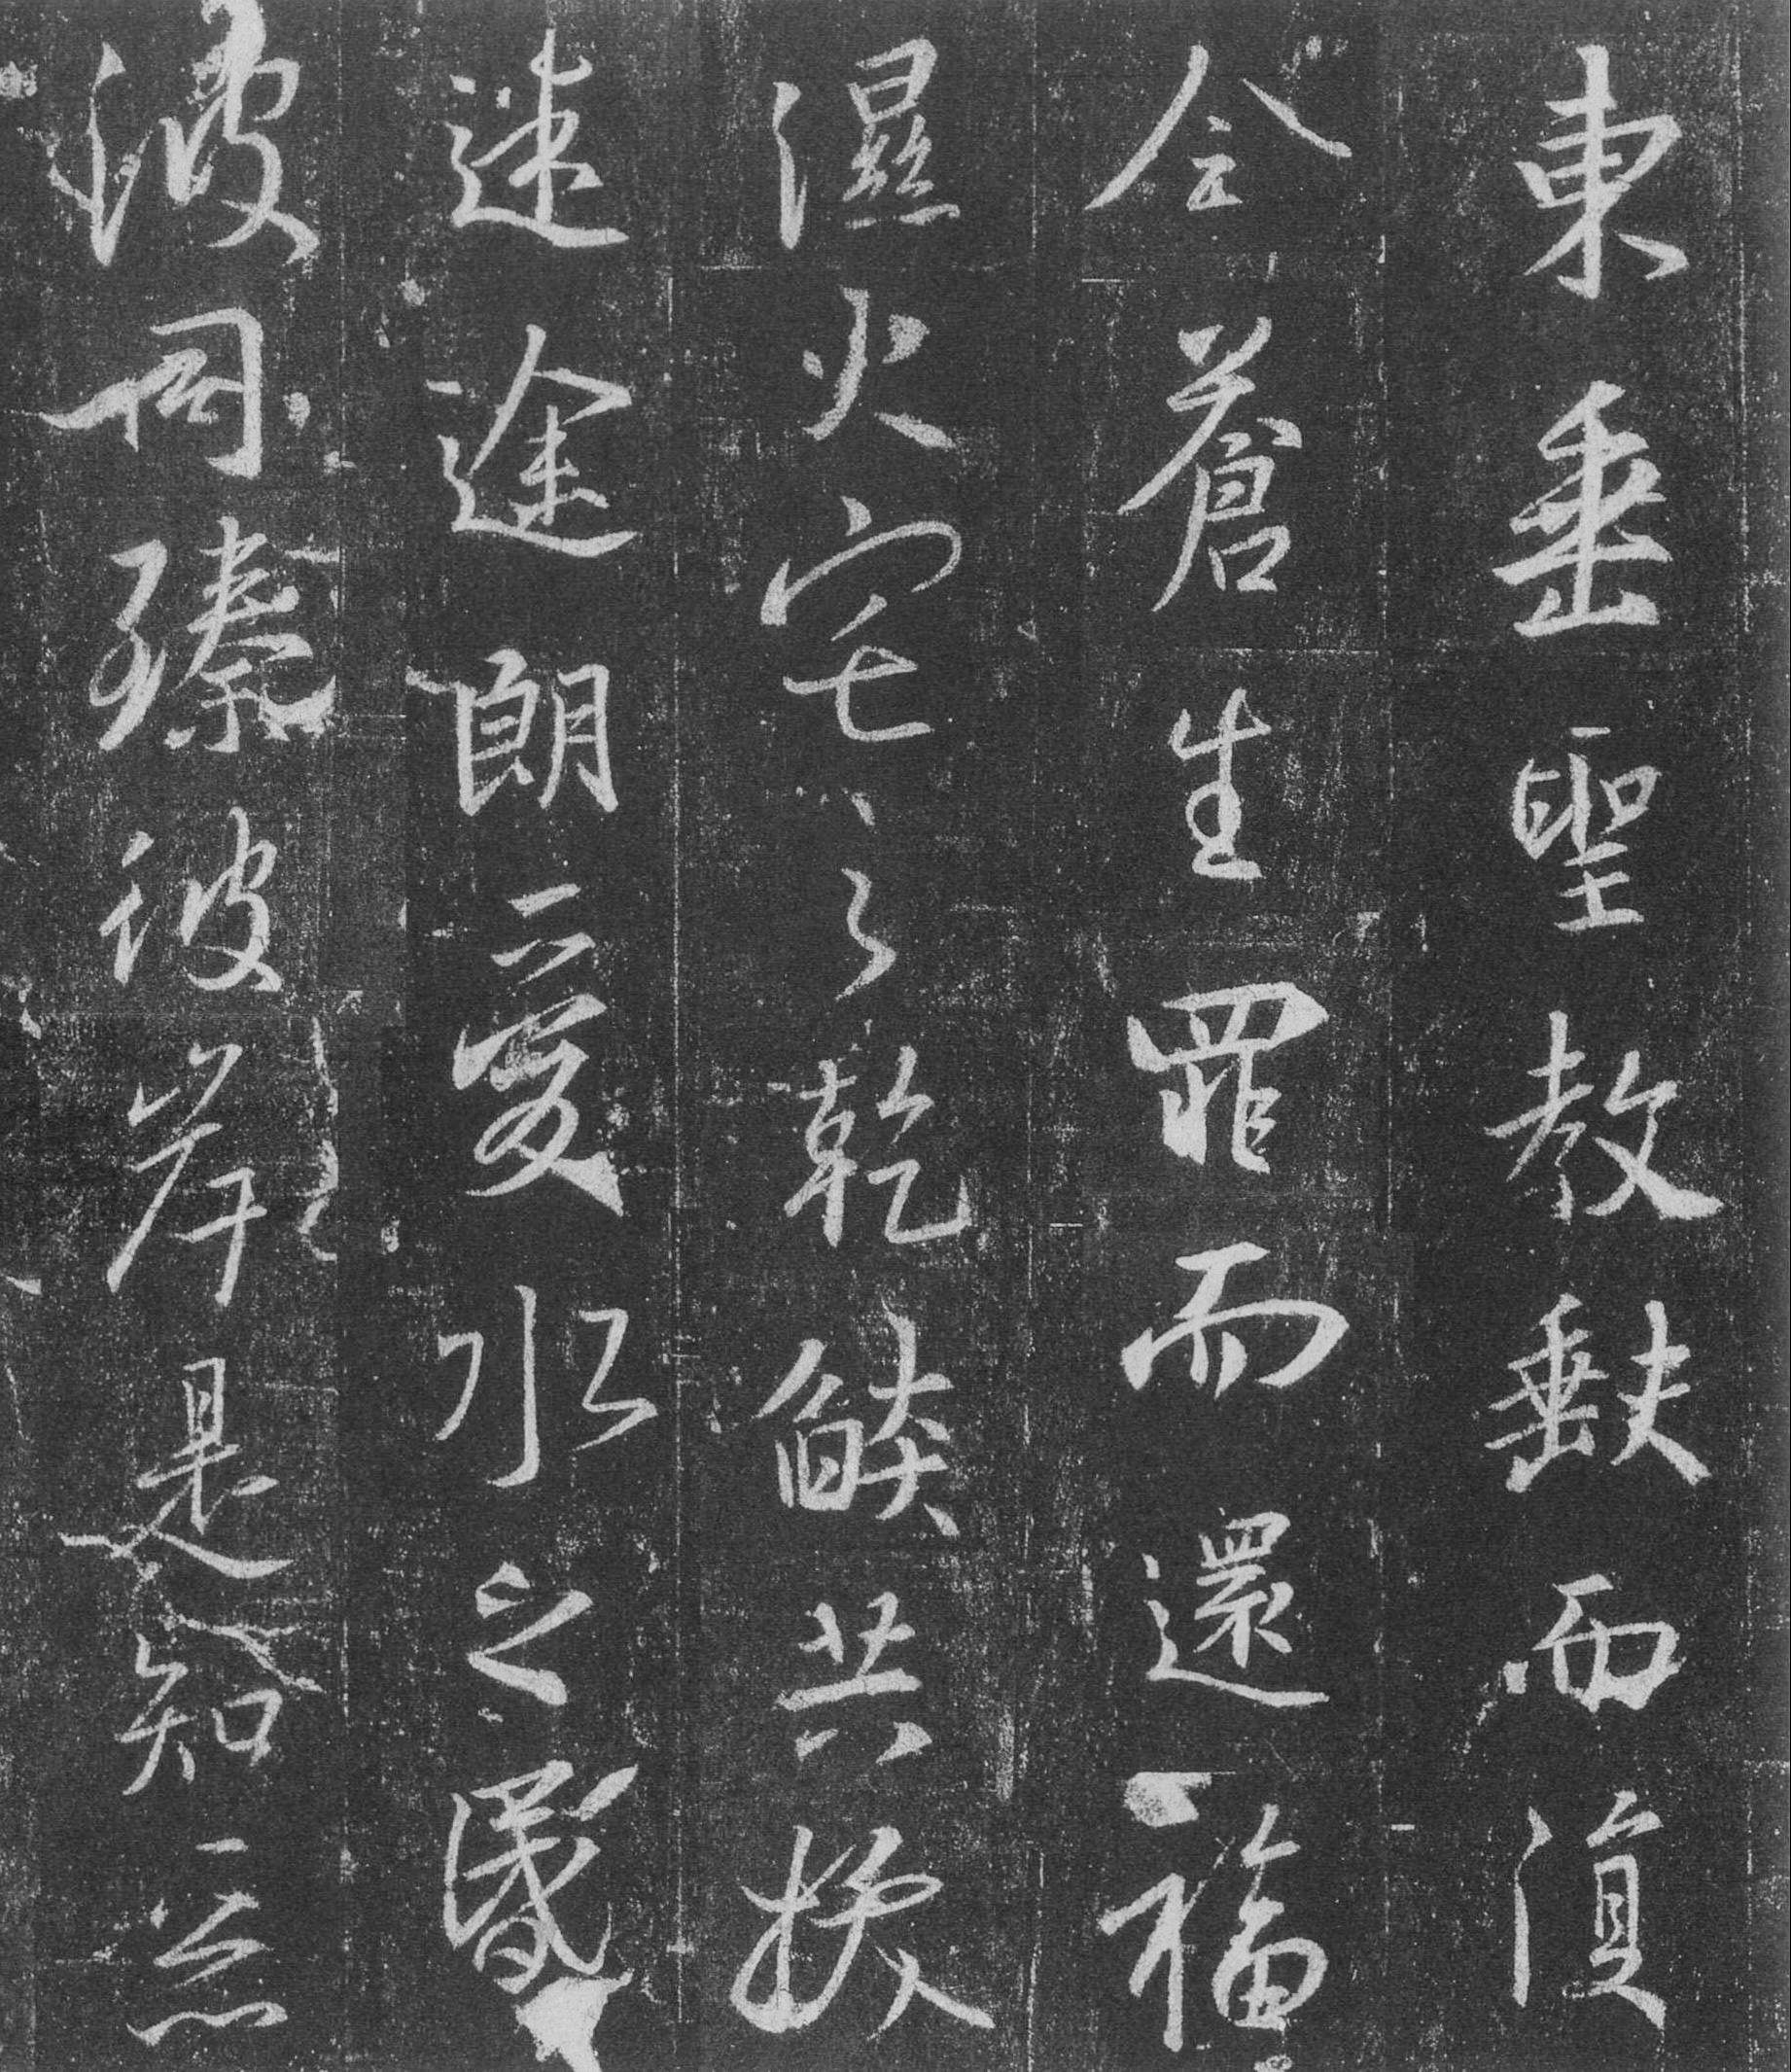 東垂聖教缺而復
全蒼生罪而還福
濕火宅之乾燄共拔
迷途朗愛水之昏
波同臻彼岸是知惡